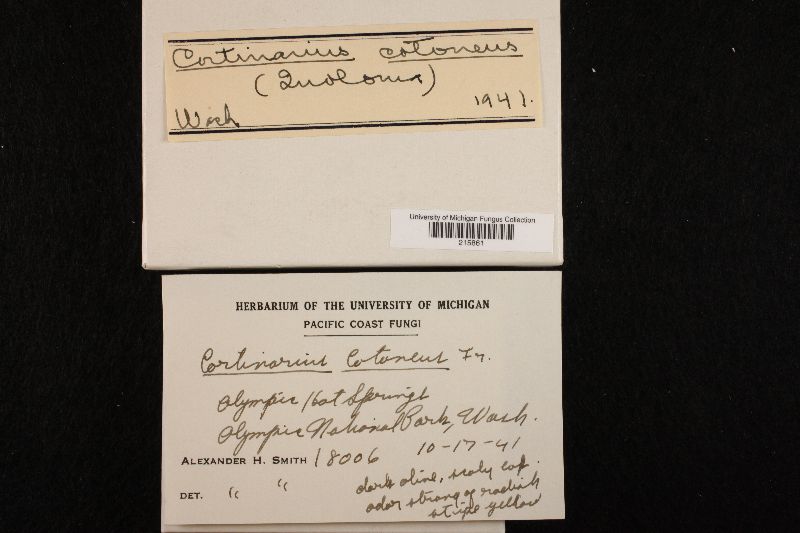 Cortinarius cotoneus
(Inoloma)
Wash. 1941.
University of Michigan Fungus Collection
215861
HERBARIUM OF THE UNIVERSITY OF MICHIGAN
PACIFIC COAST FUNGI
Cortinarius Cotoneus Fr.
Olympic Hot Springs
Olympic National Park, Wash.
ALEXANDER H. SMITH 18006 10-17-41
DET. " "
dark olive, scaly cap.
odor strong of radish
stipe yellow